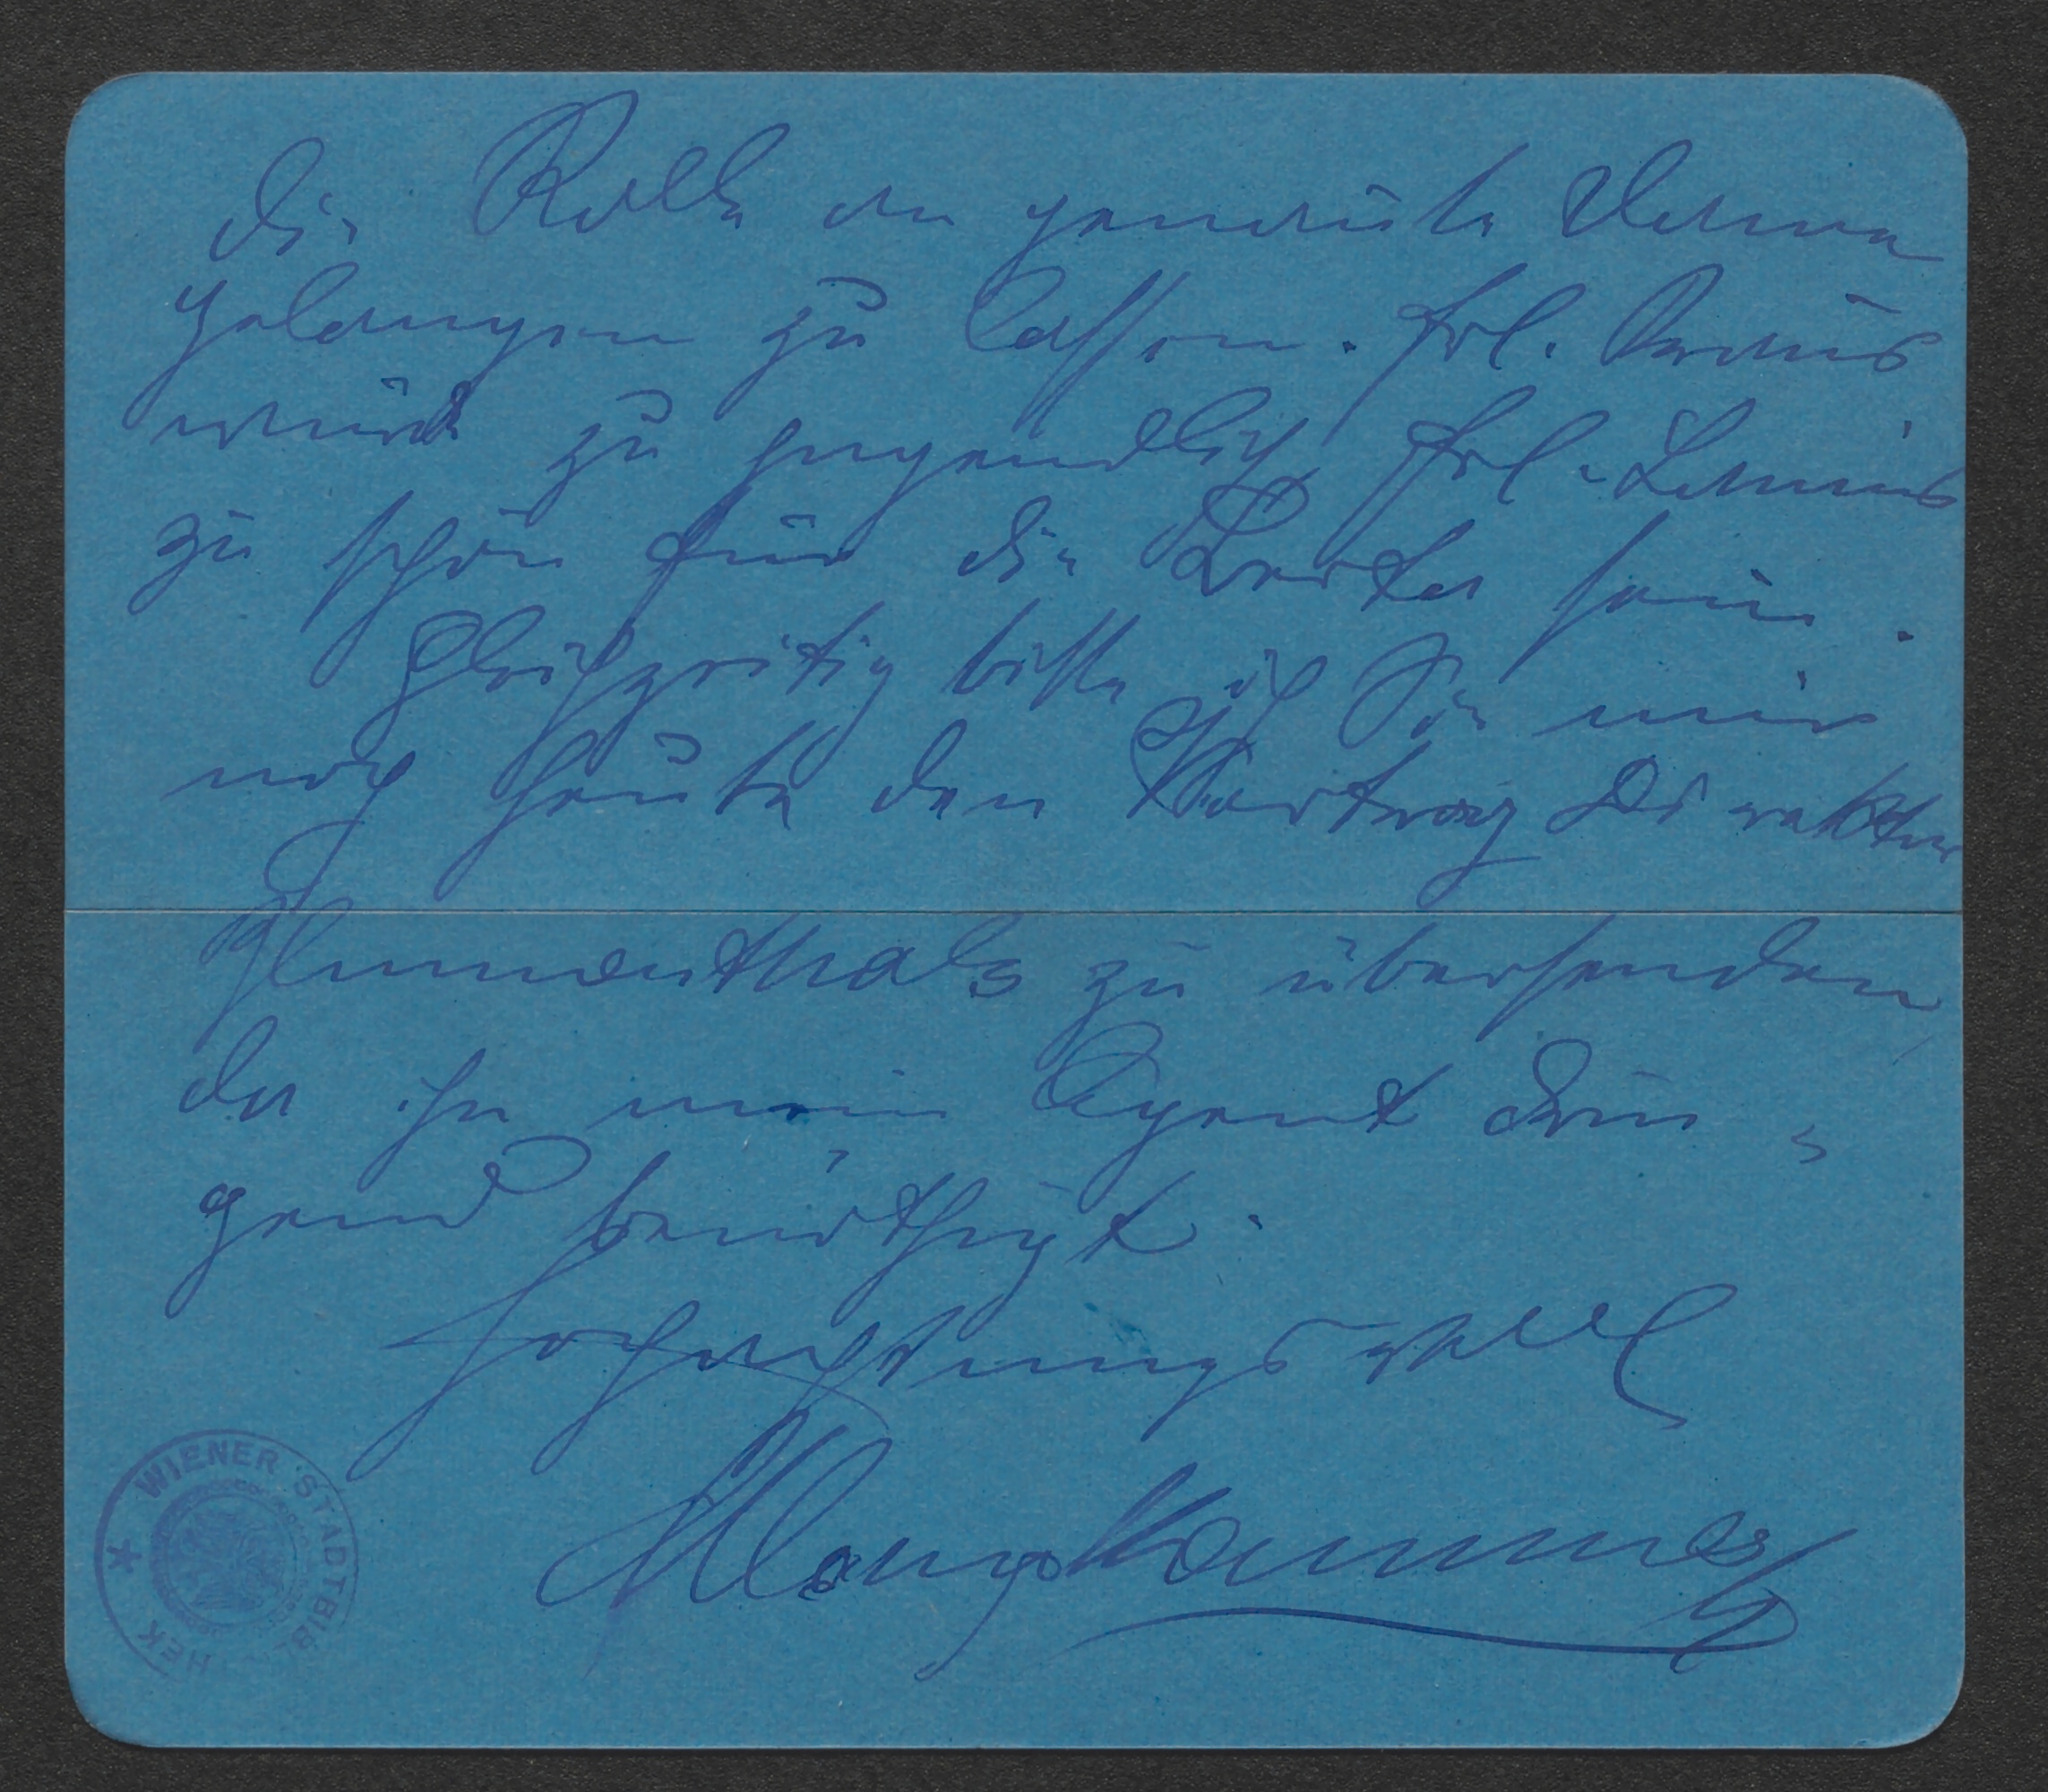 die Rolle an genannte Dame
gelangen zu lassen. Frl.
würde zu jugendlich Frl.
zu schön für die sein.
Gleichzeitig bitte ich Sie mir
noch heute den Vertrag Direktor
Blumenthals zu übersenden
da ihn mein Agent drin-
gend benöthigt.
Hochachtungsvoll
WIENER STADTBIBL HEK